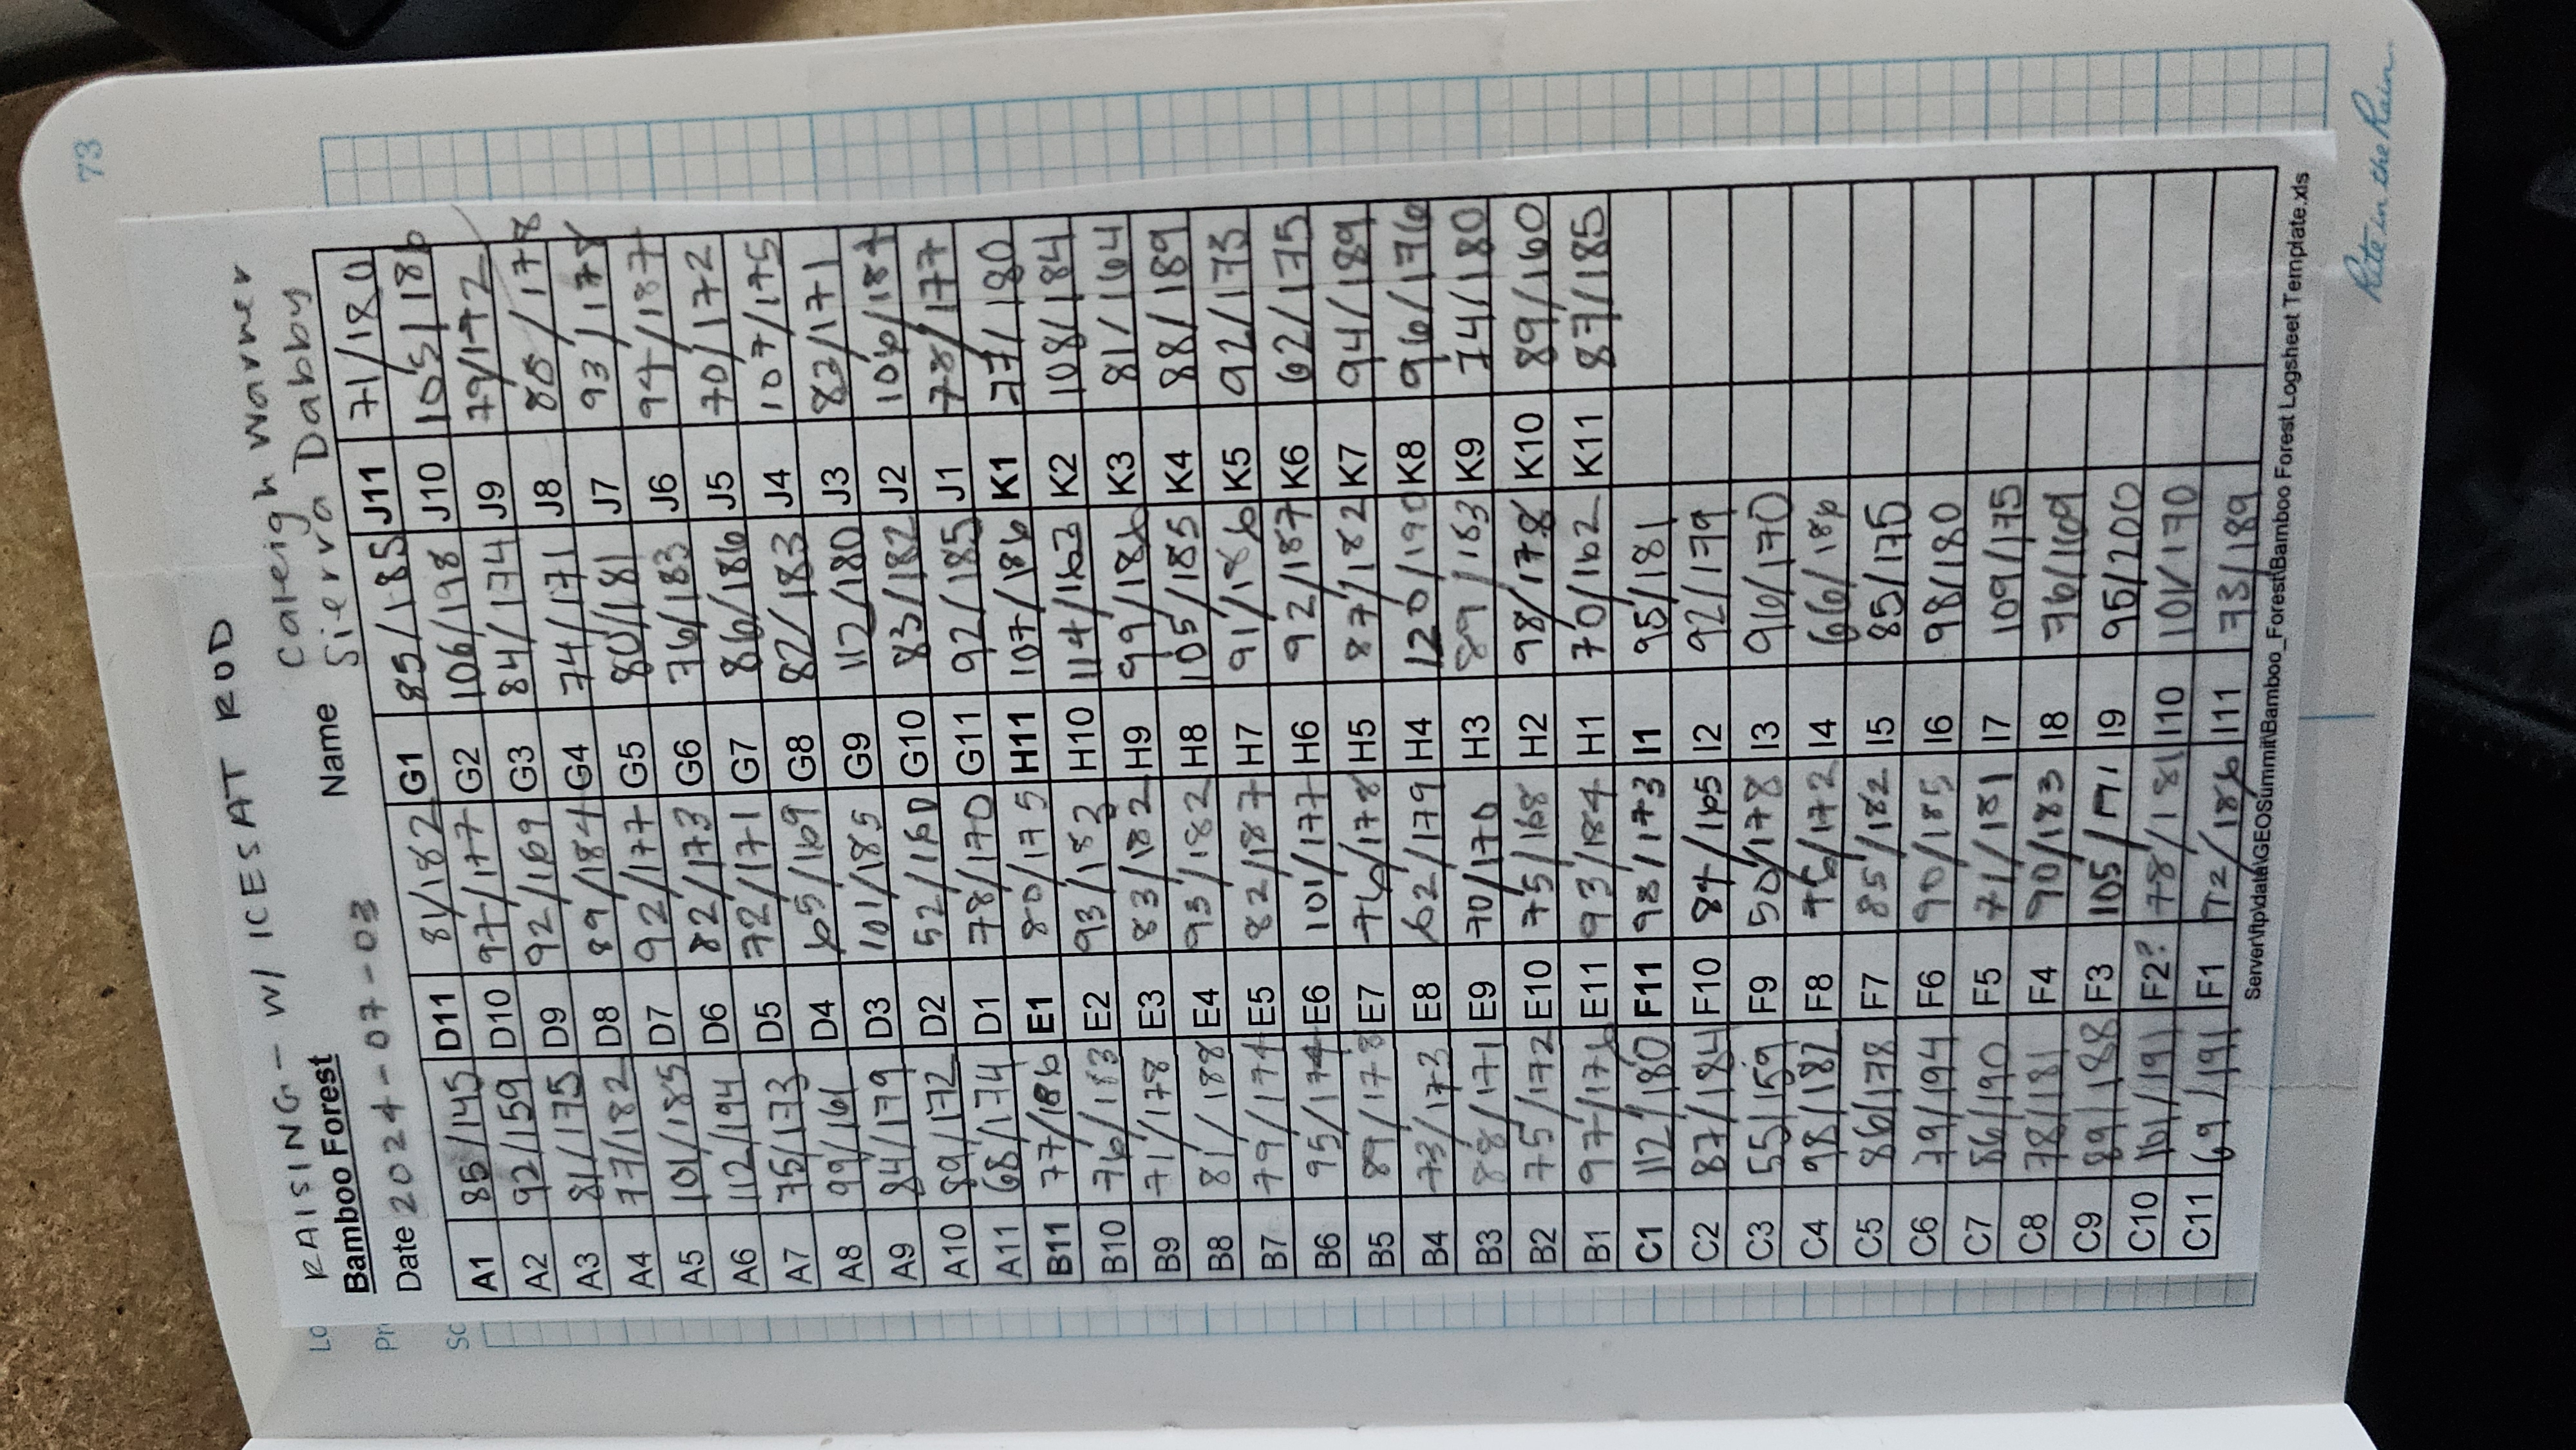 73
RAISING - W/ ICESAT ROD
Bamboo Forest
Name Caleigh Warner
Sierra Dabby
Date 2024-07-03
A1 85/145 D11 81/182 G1 85/185 J11 71/180
A2 92/159 D10 97/177 G2 106/198 J10 105/186
A3 81/175 D9 92/169 G3 84/174 J9 79/172
A4 77/182 D8 89/184 G4 74/171 J8 /178
A5 101/185 D7 92/177 G5 80/181 J7 93/178
A6 112/194 D6 82/173 G6 76/183 J6 94/187
A7 75/173 D5 72/171 G7 86/186 J5 70/172
A8 99/161 D4 65/169 G8 82/183 J4 107/175
A9 84/179 D3 101/185 G9 112/180 J3 82/171
A10 89/172 D2 52/160 G10 83/182 J2 106/187
A11 68/174 D1 78/170 G11 92/185 J1 78/177
B11 77/186 E1 80/175 H11 107/186 K1 77/180
B10 76/183 E2 93/182 H10 114/163 K2 108/184
B9 71/178 E3 83/182 H9 99/186 K3 81/164
B8 81/188 E4 93/182 H8 105/185 K4 88/189
B7 79/174 E5 82/187 H7 91/186 K5 92/173
B6 95/174 E6 101/177 H6 92/187 K6 62/175
B5 89/178 E7 76/178 H5 87/182 K7 94/189
B4 73/173 E8 62/179 H4 120/190 K8 96/176
B3 88/171 E9 70/170 H3 89/163 K9 74/180
B2 75/172 E10 75/168 H2 98/178 K10 89/160
B1 97/176 E11 93/184 H1 70/162 K11 87/185
C1 112/180 F11 98/173 I1 95/181
C2 87/184 F10 84/165 I2 92/179
C3 55/159 F9 50/178 I3 90/170
C4 98/187 F8 76/172 I4 66/186
C5 86/178 F7 85/182 I5 85/175
C6 79/194 F6 90/185 I6 98/180
C7 86/190 F5 71/181 I7 109/175
C8 78/181 F4 90/183 I8 76/169
C9 89/188 F3 105/171 I9 95/200
C10 101/191 F2? 78/181 I10 101/170
C11 69/191 F1 72/186 I11 73/189
Server\ftp\data\GEOSummit\Bamboo_Forest\Bamboo Forest Logsheet Template.xls
Rite in the Rain